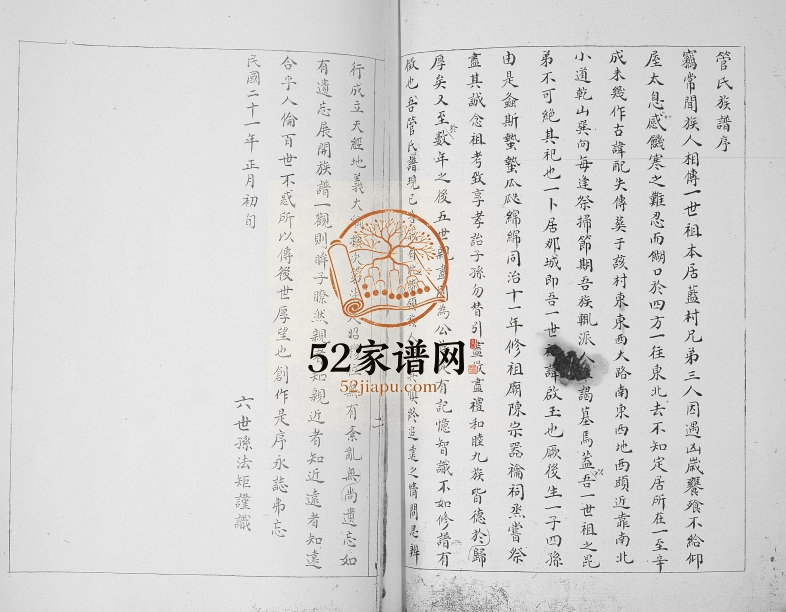 管氏族譜序
竊常聞族人相傳一世祖本居藍村兄弟三人因遇凶歲饔飧不給仰
屋太息感饑寒之難忍而餬口於四方一往東北去不知定居所在一至辛
成未幾作古諱配失傳葬于該村東東西大路南東西地西頭近靠南北
小道乾山巽向每逢祭掃節期吾族輒派人 謁墓焉蓋吾一世祖之昆
弟不可絕其祀也一卜居那城即吾一世祖諱啟玉也厥後生一子四孫
由是螽斯蟄蟄瓜瓞綿綿同治十一年修祖廟陳宗器禴祠烝嘗祭
盡其誠念祖考致享孝詒子孫勿替引盡 盡禮和睦九族皆德於歸
厚矣又至數年之後五世親盡 為公 有記憶智識不如修譜有
徵也吾管氏譜現已 追遠之情問思辨
行成立天經地義大 昭 有紊亂無尚遺忘如
有遺忘展開族譜一觀則眸子瞭然親者知親近者知近遠者知遠
合乎人倫百世不惑所以傳後世厚望也創作是序永誌弗忘
六世孫法矩謹識
民國二十一年正月初旬
二
52家谱网
52jiapu.com